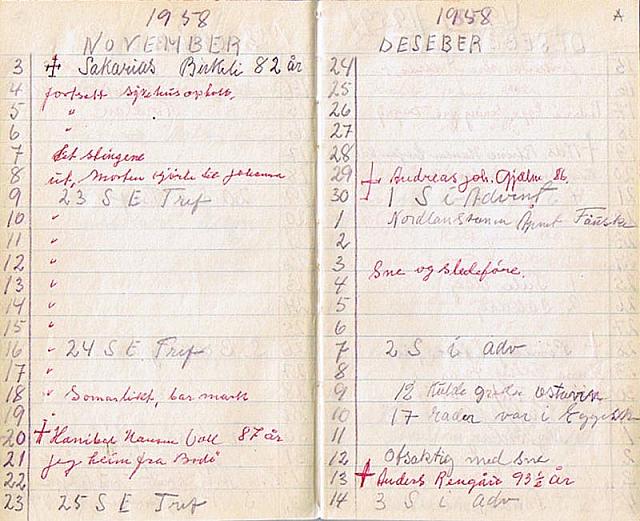 1958
NOVEMBER
3 Sakarias Birkeli 82 år
4 fortsett sykehusophold,
5 "
6 "
7 stingene
8 ut, Morten til Johanna
9 23 S E Tref
10 "
11 "
12 "
13 "
14 "
15 "
16 " 24 S E Tref
17 "
18 " Somarlikt, bar mark
19 "
20 Hansen Vall 87 år
21 jeg heim fra Bodø
22
23 25 S E Tref
1958
DESEBER
24
25
26
27
28
29 Andreas Joh. Gjælm 86.
30 1 S i Advent
1 Nordlandsbanen Fauske
2
3 Sne og sledeføre.
4
5
6
7 2 S i adv
8
9 12 kulde grader
10 17 var i
11
12 med sne
13 Anders Rengård 93½ år
14 3 S i adv